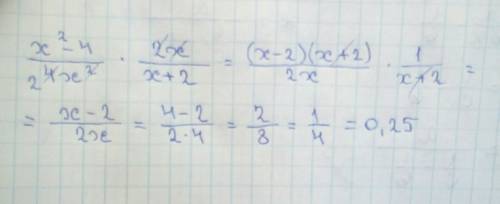 x² - 4 / 2 4x² · 2x / x + 2 = (x - 2)(x + 2) / 2x · 1 / x + 2 =
= x - 2 / 2x = 4 - 2 / 2 · 4 = 2 / 8 = 1 / 4 = 0,25